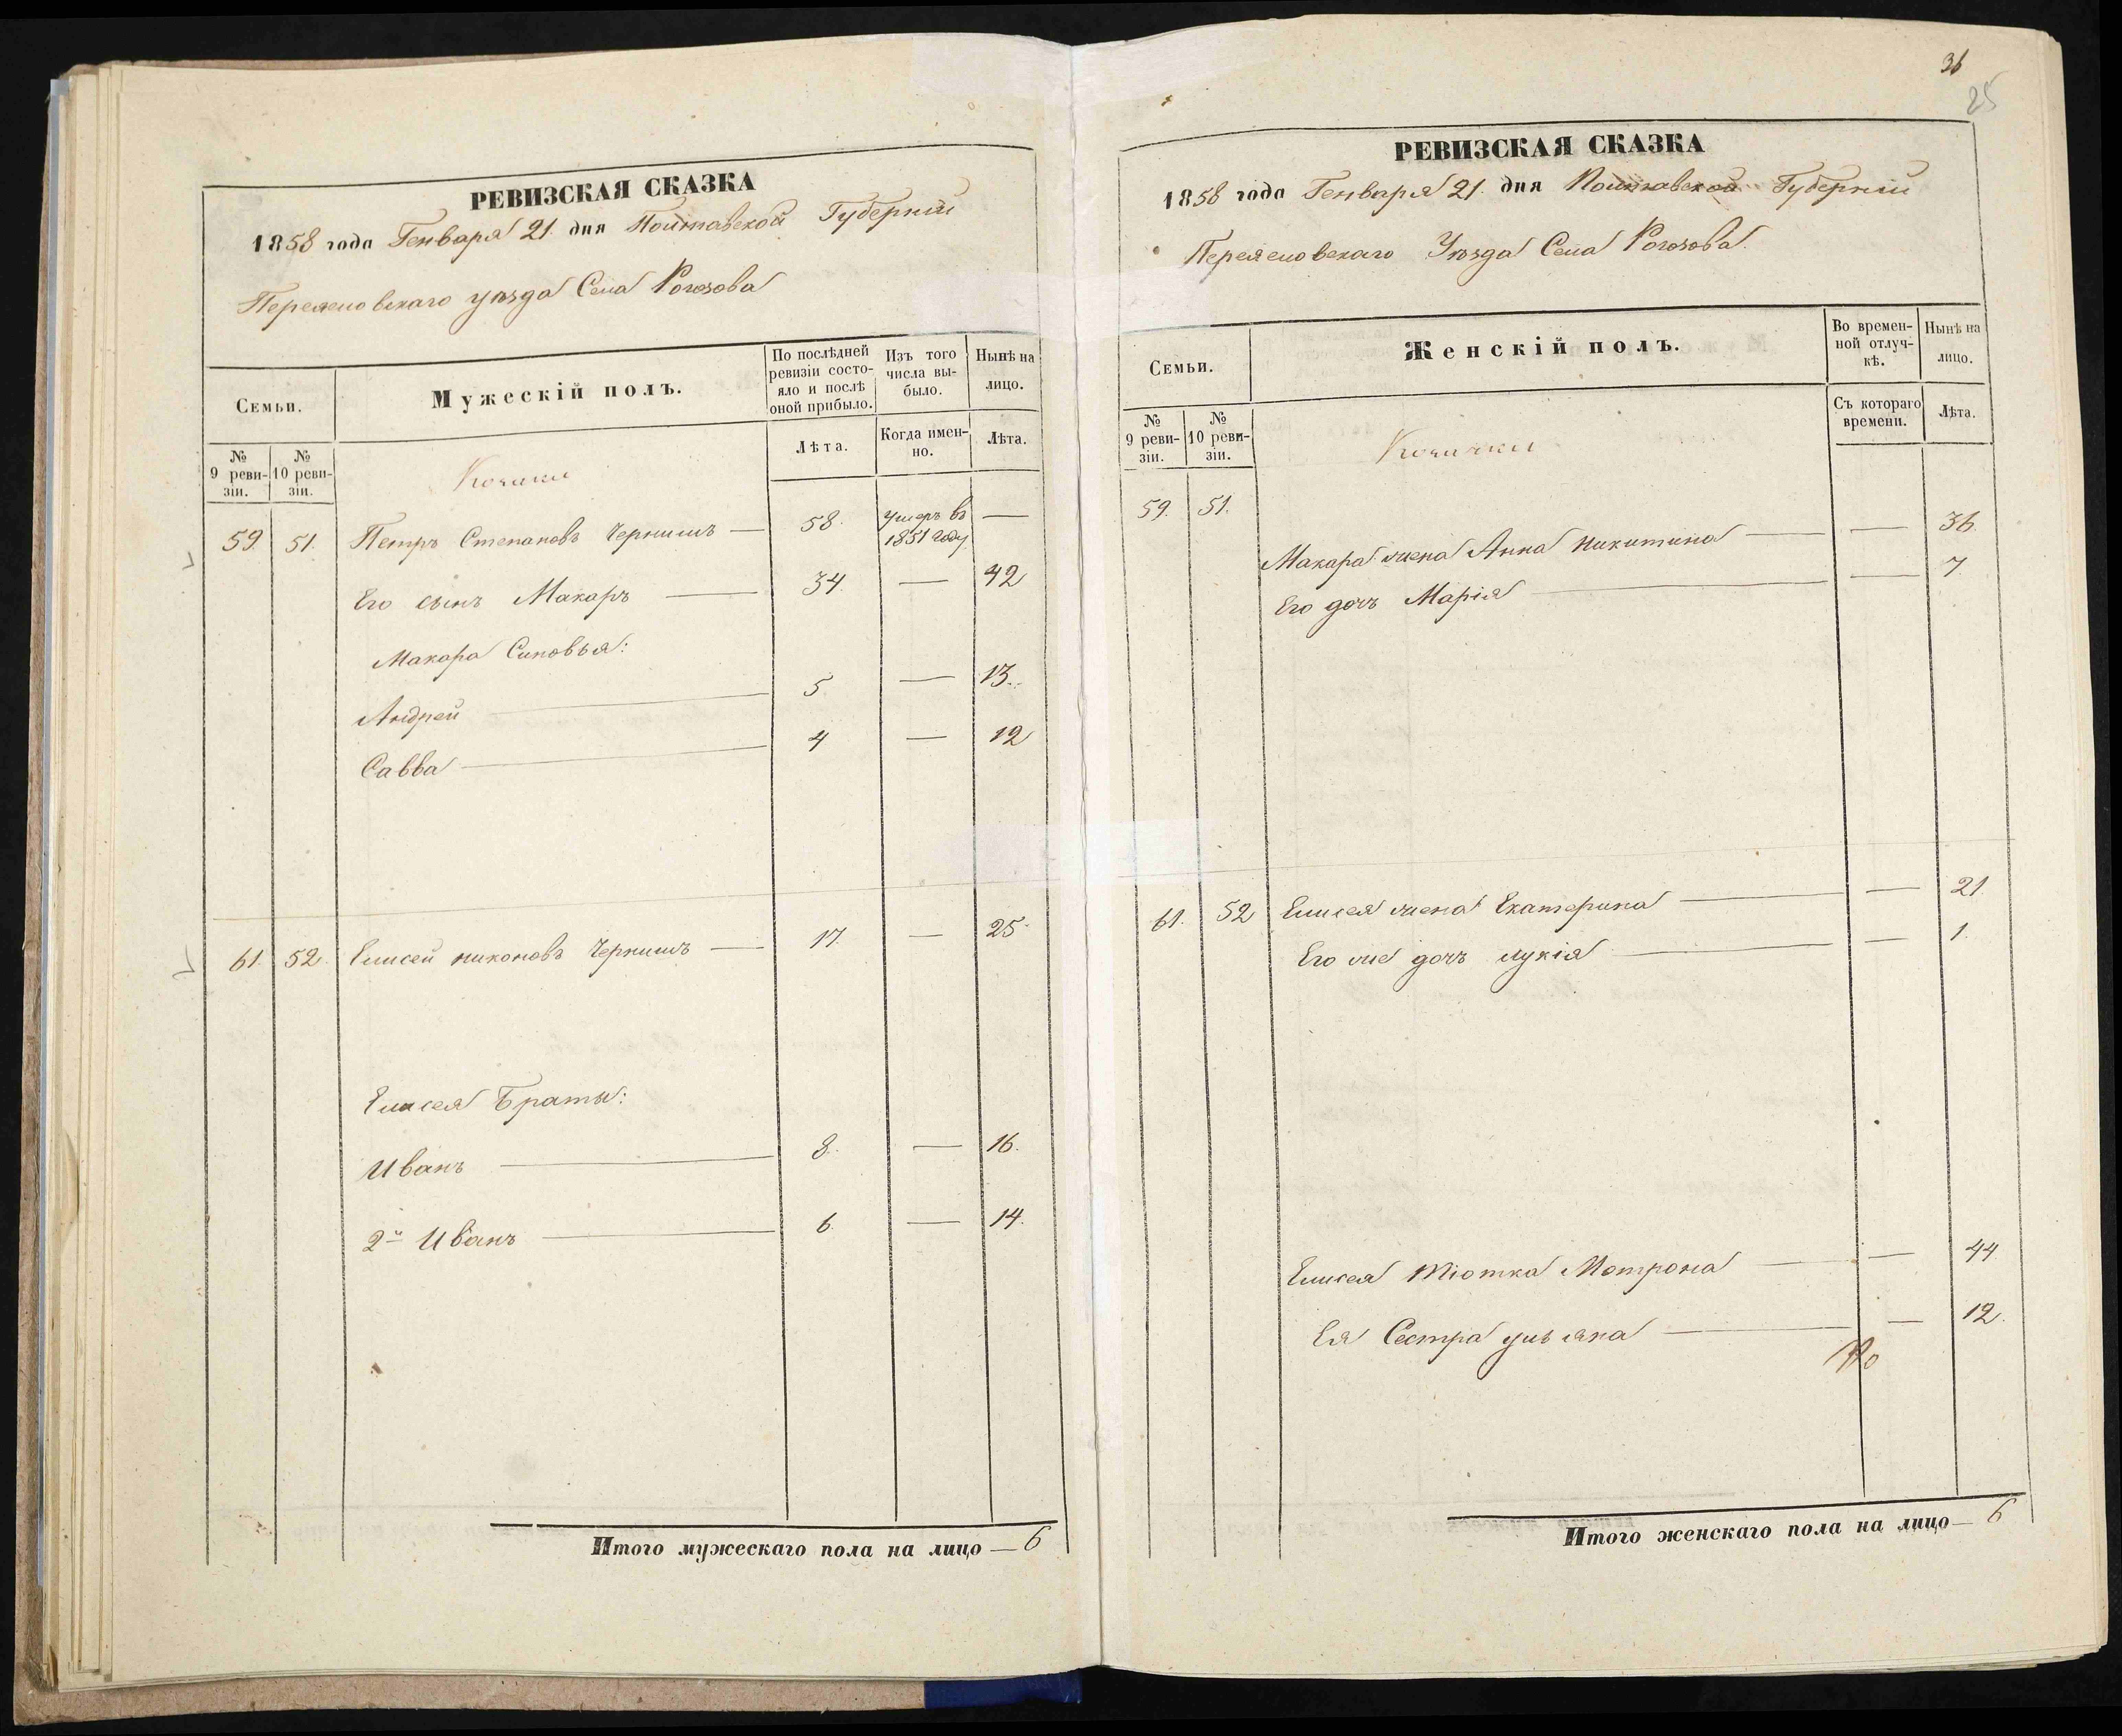 РЕВИЗСКАЯ СКАЗКА
1858 года Генваря 21. дня Полтавской Губерніи
Переяславскаго уѣзда Села Рогозова
Семьи.
Мужескій полъ.
По послѣдней ревизіи состояло и послѣ оной прибыло.
Изъ того числа выбыло.
Нынѣ на лицо.
№ 9 ревизіи.
№ 10 ревизіи.
Лѣта.
Когда именно.
Лѣта.
59. 51. Петръ Степановъ Чернишъ — 58. умеръ въ 1851 году —
Его сынъ Макаръ — 34. — 42
Макара Синовья:
Андрей — 5 — 13.
Савва — 4 — 12
61. 52. Елисей никоновъ Чернишъ — 17. — 25
Елисея Браты:
Иванъ — 8. — 16.
2й Иванъ — 6. — 14.
Итого мужескаго пола на лицо — 6
36
25
РЕВИЗСКАЯ СКАЗКА
1858 года Генваря 21. дня Полтавской Губерніи
Переяславскаго Уѣзда Села Рогозова.
Семьи.
Женскій полъ.
Во временной отлучкѣ.
Нынѣ на лицо.
№ 9 ревизіи.
№ 10 ревизіи.
Съ котораго времени.
Лѣта.
59. 51.
Макара жена Анна никитина — — 36.
Его дочь Марія — — 7
61. 52 Елисея жена Екатерина — — 21
Его же дочь лукія — — 1.
Елисея тіотка Мотрона — — 44
Ея Сестра уліяна — — 12.
Итого женскаго пола на лицо — 6